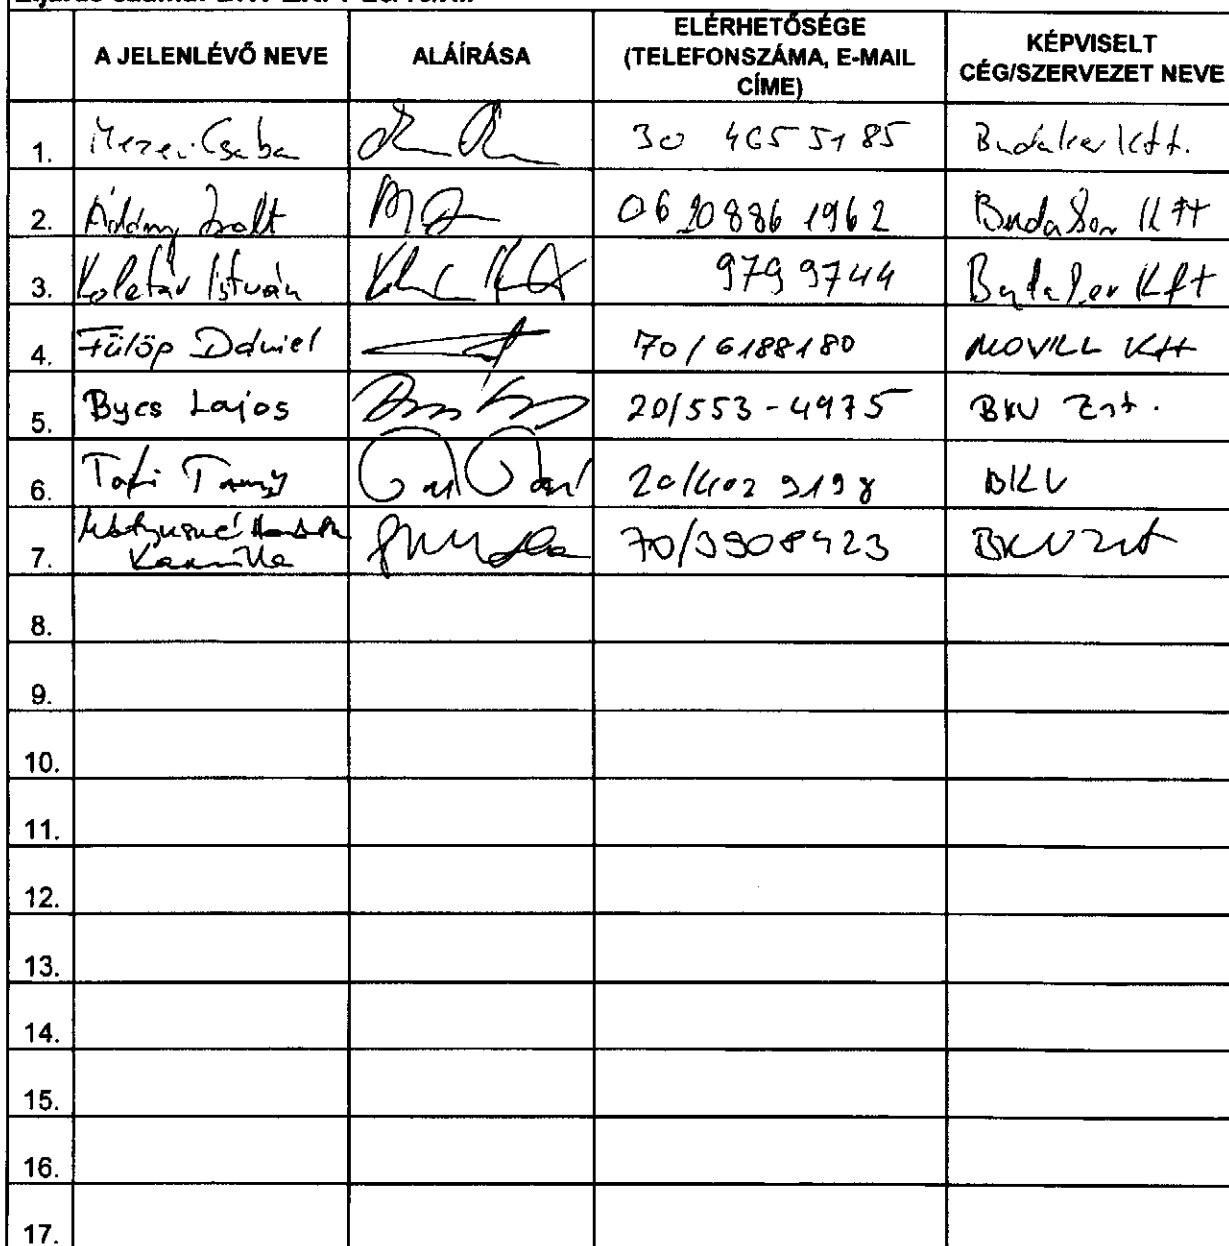 A JELENLÉVŐ NEVE ALÁÍRÁSA ELÉRHETŐSÉGE (TELEFONSZÁMA, E-MAIL CÍME) KÉPVISELT CÉG/SZERVEZET NEVE
1. Mezei Csaba 30 465 5185 Budaker Kft.
2. Ádám Zsolt 06 20 886 1962 Kft
3. Koletár István 979 9744 Kft
4. Fülöp Dániel 70/6188180 MOVILL Kft
5. Bycs Lajos 20/553-4975 BKV Zrt.
6. 20/402 9198 BKV
7. Kamilla BKV Zrt
8.
9.
10.
11.
12.
13.
14.
15.
16.
17.